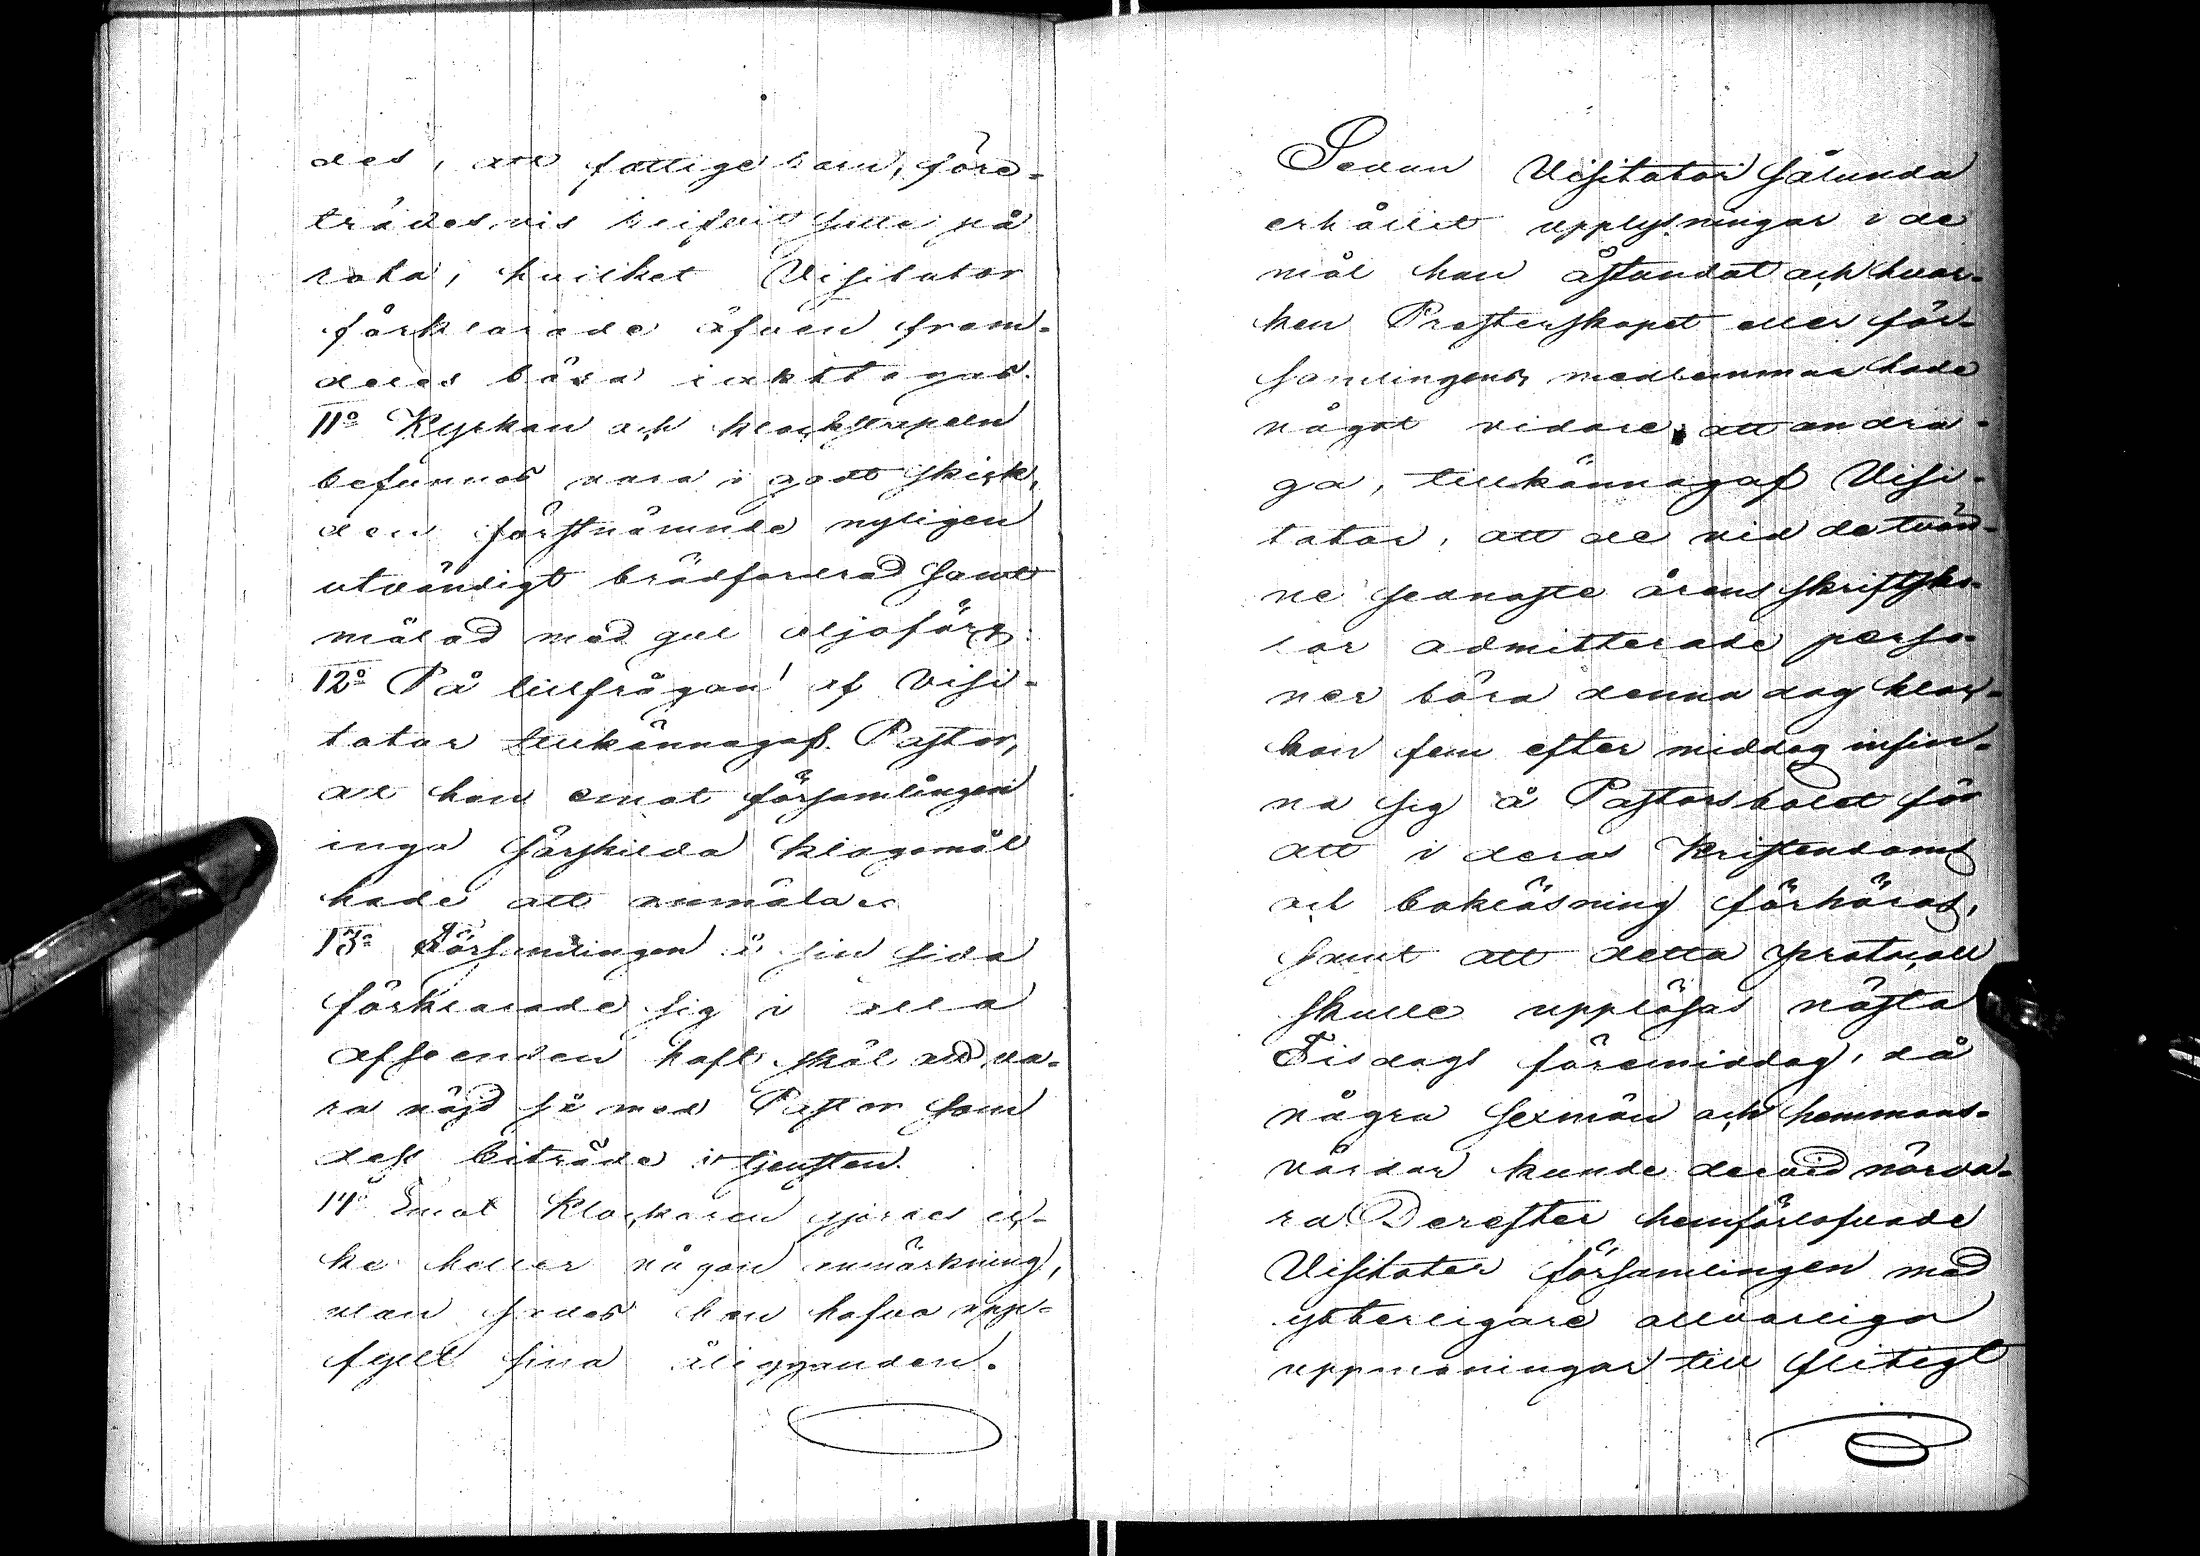 des, att fattige barn, före-
trädesvis blifvit satte på
rota, hvilket Visitator
förklarade äfven fram-
deles böra iakttagas.
11o Kyrkan och klockstapeln
befunnos vara i godt skick,
den förstnämnde nyligen
utvändigt brädfordrad samt
målad med gul oljefärg.
12o På tillfrågan af Visi-
tator tillkännagaf Pastor,
att han emot församlingen
inga särskilda klagomål
hade att anmäla.
13o Församlingen å sin sida
förklarade sig i alla
afseenden haft skäl att va-
ra nöjd så med Pastor som
dess biträde i tjensten.
14o Emot Klockaren gjordes ic-
ke heller någon anmärkning,
utan sades han hafva upp-
fyllt sina åligganden.
Sedan Visitator sålunda
erhållit upplysningar i de
mål han åstundat och hvar-
ken Presterskapet eller för-
samlingens medlemmar hade
något vidare att andra-
ga, tillkännagaf Visi-
tator, att de vid de tvän-
ne sednaste årens skriftsko-
lor admitterade perso-
ner böra denna dag kloc-
kan fem efter middag infin-
na sig å Pastorsbolet för
att i deras Kristendoms
och bokläsning förhöras,
samt att detta protocoll
skulle uppläsas nästa
Tisdags föremiddag, då
några sexmän och hemmans-
värdar kunde dervid närva-
ra. Derefter hemförlofvade
Visitator församlingen med
ytterligare allvarliga
uppmaningar till flitigt